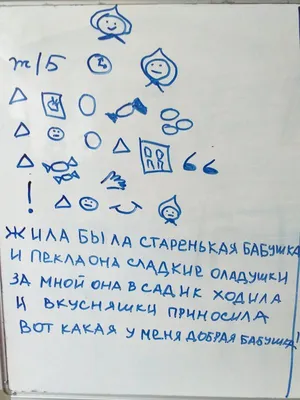 Ж/Б
ЖИЛА БЫЛА СТАРЕНЬКАЯ БАБУШКА
И ПЕКЛА ОНА СЛАДКИЕ ОЛАДУШКИ
ЗА МНОЙ ОНА В САДИК ХОДИЛА
И ВКУСНЯШКИ ПРИНОСИЛА
ВОТ КАКАЯ У МЕНЯ ДОБРАЯ БАБУШКА!